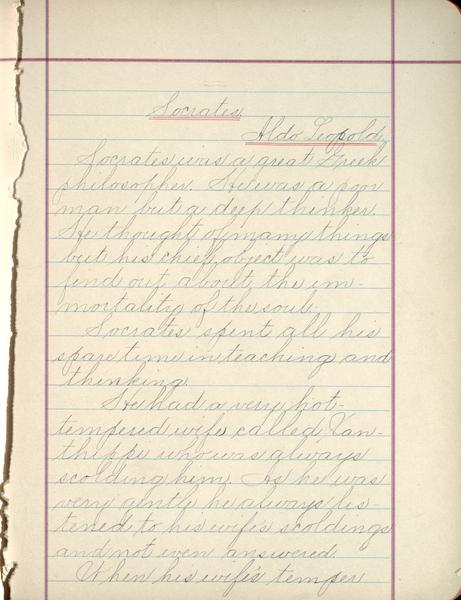 Socrates.
Aldo Leopold.
Socrates was a great Greek
philosopher. He was a poor
man but a deep thinker.
He thought of many things
but his chief object was to
find out about, the im-
mortality of the soul.
Socrates spent all his
spare time in teaching and
thinking.
He had a very hot-
tempered wife called, Xan-
thippe who was always
scolding him. As he was
very gentle he always lis-
tened to his wife's scoldings
and not even answered.
When his wife's temper